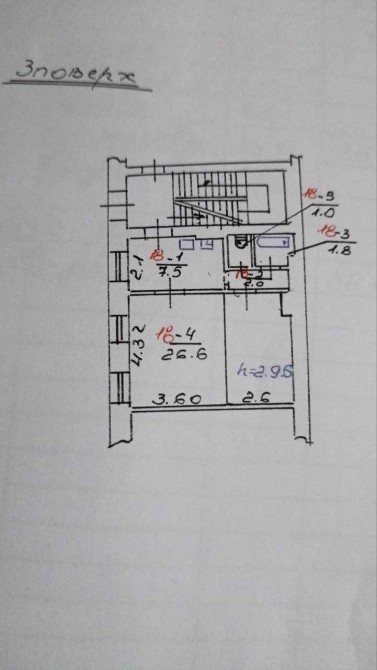 3 поверх
18-9
1.0
18-3
1.8
18-1
7.5
2.1
18-2
2.0
4.32
18-4
26.6
h=2.95
3.60
2.6